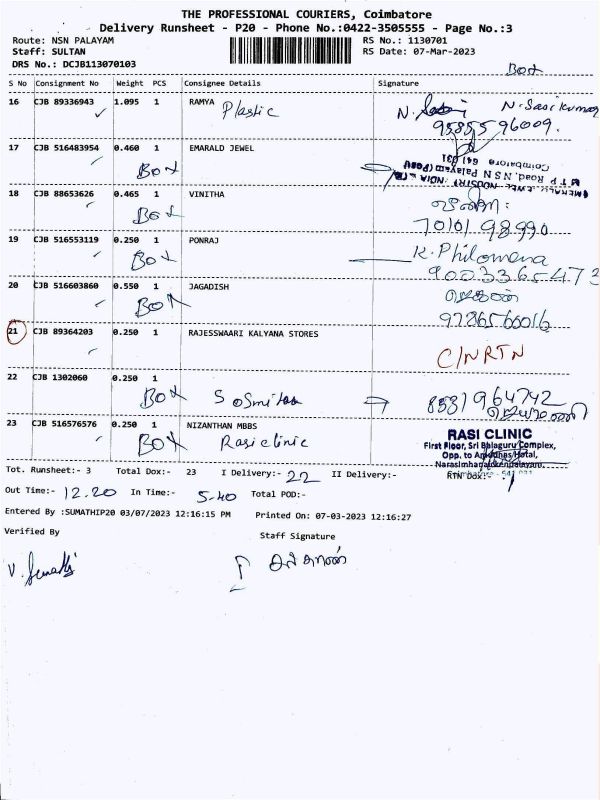 THE PROFESSIONAL COURIERS, Coimbatore
Delivery Runsheet - P20 - Phone No.:0422-3505555 - Page No.:3
Route: NSN PALAYAM RS No.: 1130701
Staff: SULTAN RS Date: 07-Mar-2023
DRS No.: DCJB113070103
Box
S No Consignment No Weight PCS Consignee Details Signature
16 CJB 89336943 1.095 1 RAMYA Plastic N. Sasikumar
95855 96009.
17 CJB 516483954 0.460 1 EMARALD JEWEL
Box
M T P Road, N S N Palayam (Post)
Coimbatore 641 031
18 CJB 88653626 0.465 1 VINITHA
Box
70101 98990
19 CJB 516553119 0.250 1 PONRAJ K. Philomena
Box 9003365473
20 CJB 516603860 0.550 1 JAGADISH
Box 9786566016
21 CJB 89364203 0.250 1 RAJESSWAARI KALYANA STORES
C/N RTN
22 CJB 1302060 0.250 1
Box 8531964742
23 CJB 516576576 0.250 1 NIZANTHAN MBBS
Box Rasi clinic
RASI CLINIC
First Floor, Sri Balaguru Complex,
Tot. Runsheet:- 3 Total Dox:- 23 I Delivery:- 22 II Delivery:- RTN Dox:- 1
Out Time:- 12.20 In Time:- 5-40 Total POD:-
Entered By :SUMATHIP20 03/07/2023 12:16:15 PM Printed On: 07-03-2023 12:16:27
Verified By Staff Signature